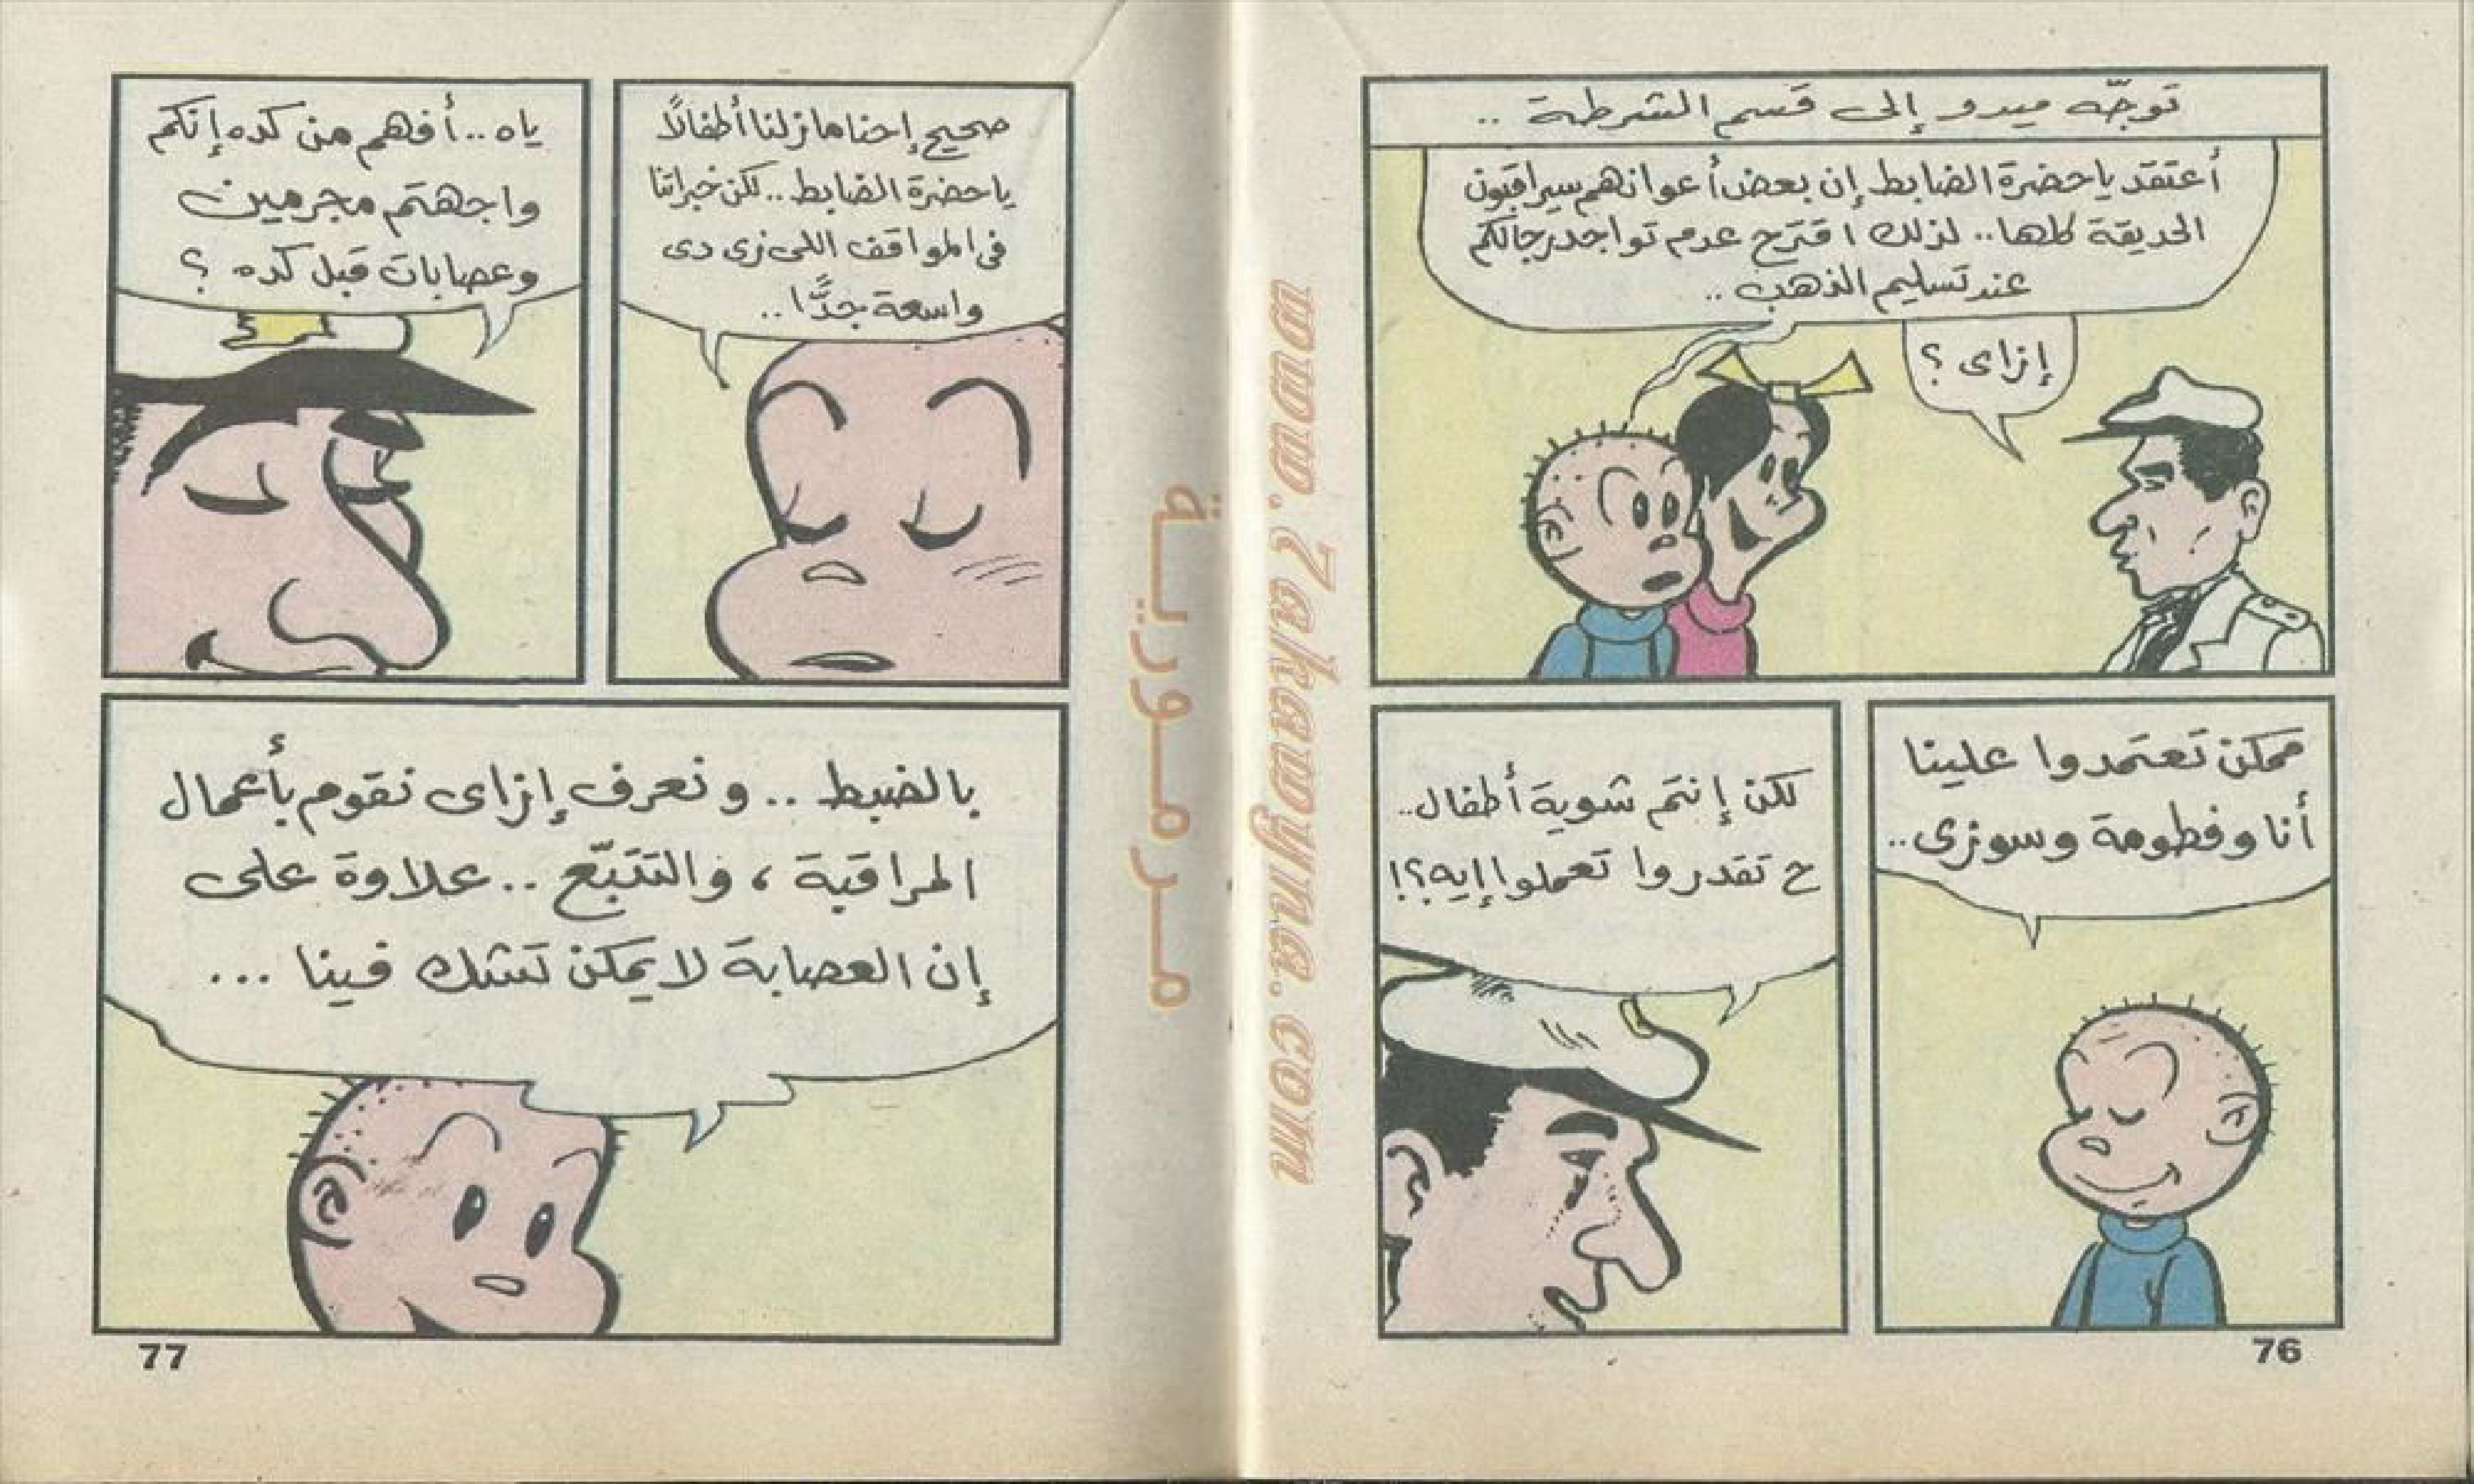 توجّه ميدو إلى قسم الشرطة ..
أعتقد ياحضرة الضابط إن بعض أعوانهم سيراقبون
الحديقة كلها.. لذلك اقترح عدم تواجد رجالكم
عند تسليم الذهب ..
إزاى ؟
ممكن تعتمدوا علينا
أنا وفطومة وسوزى ..
لكن إنتم شوية أطفال ..
ح تقدروا تعملوا إيه؟!
76
صحيح إحنا مازلنا أطفالاً
ياحضرة الضابط .. لكن خبراتنا
فى المواقف اللى زى دى
واسعة جدًّا ..
ياه .. أفهم من كده إنكم
واجهتم مجرمين
وعصابات قبل كده ؟
بالضبط .. ونعرف إزاى نقوم بأعمال
المراقبة ، والتتبّع .. علاوة على
إن العصابة لا يمكن تشك فينا ...
77
مرمورية
www.7akawyna.com